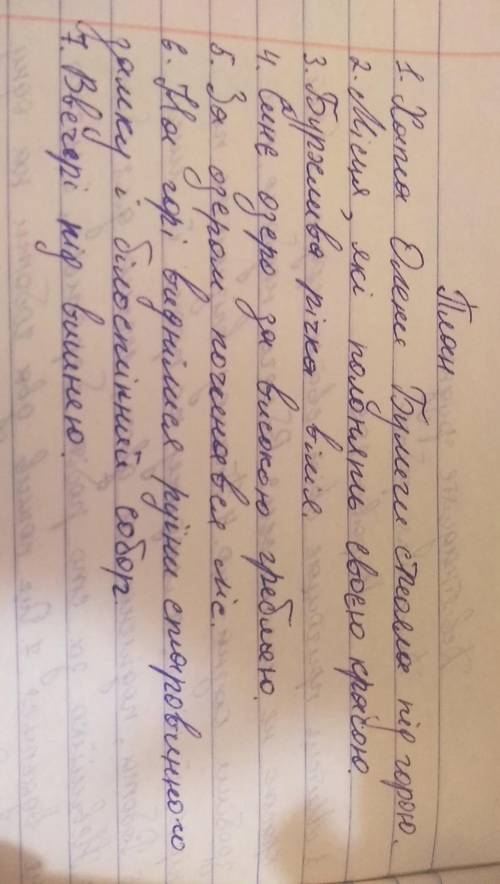 План
1. Хатла Олекси Булиги стояла під горою.
2. Місця, які полонять своєю красою.
3. Бурхлива річка Вілія.
4. Синє озеро за високою греблею.
5. За озером починався ліс.
6. На горі виднілися руїни старовинного
замку і білостінний собор.
7. Ввечері під вишнею.